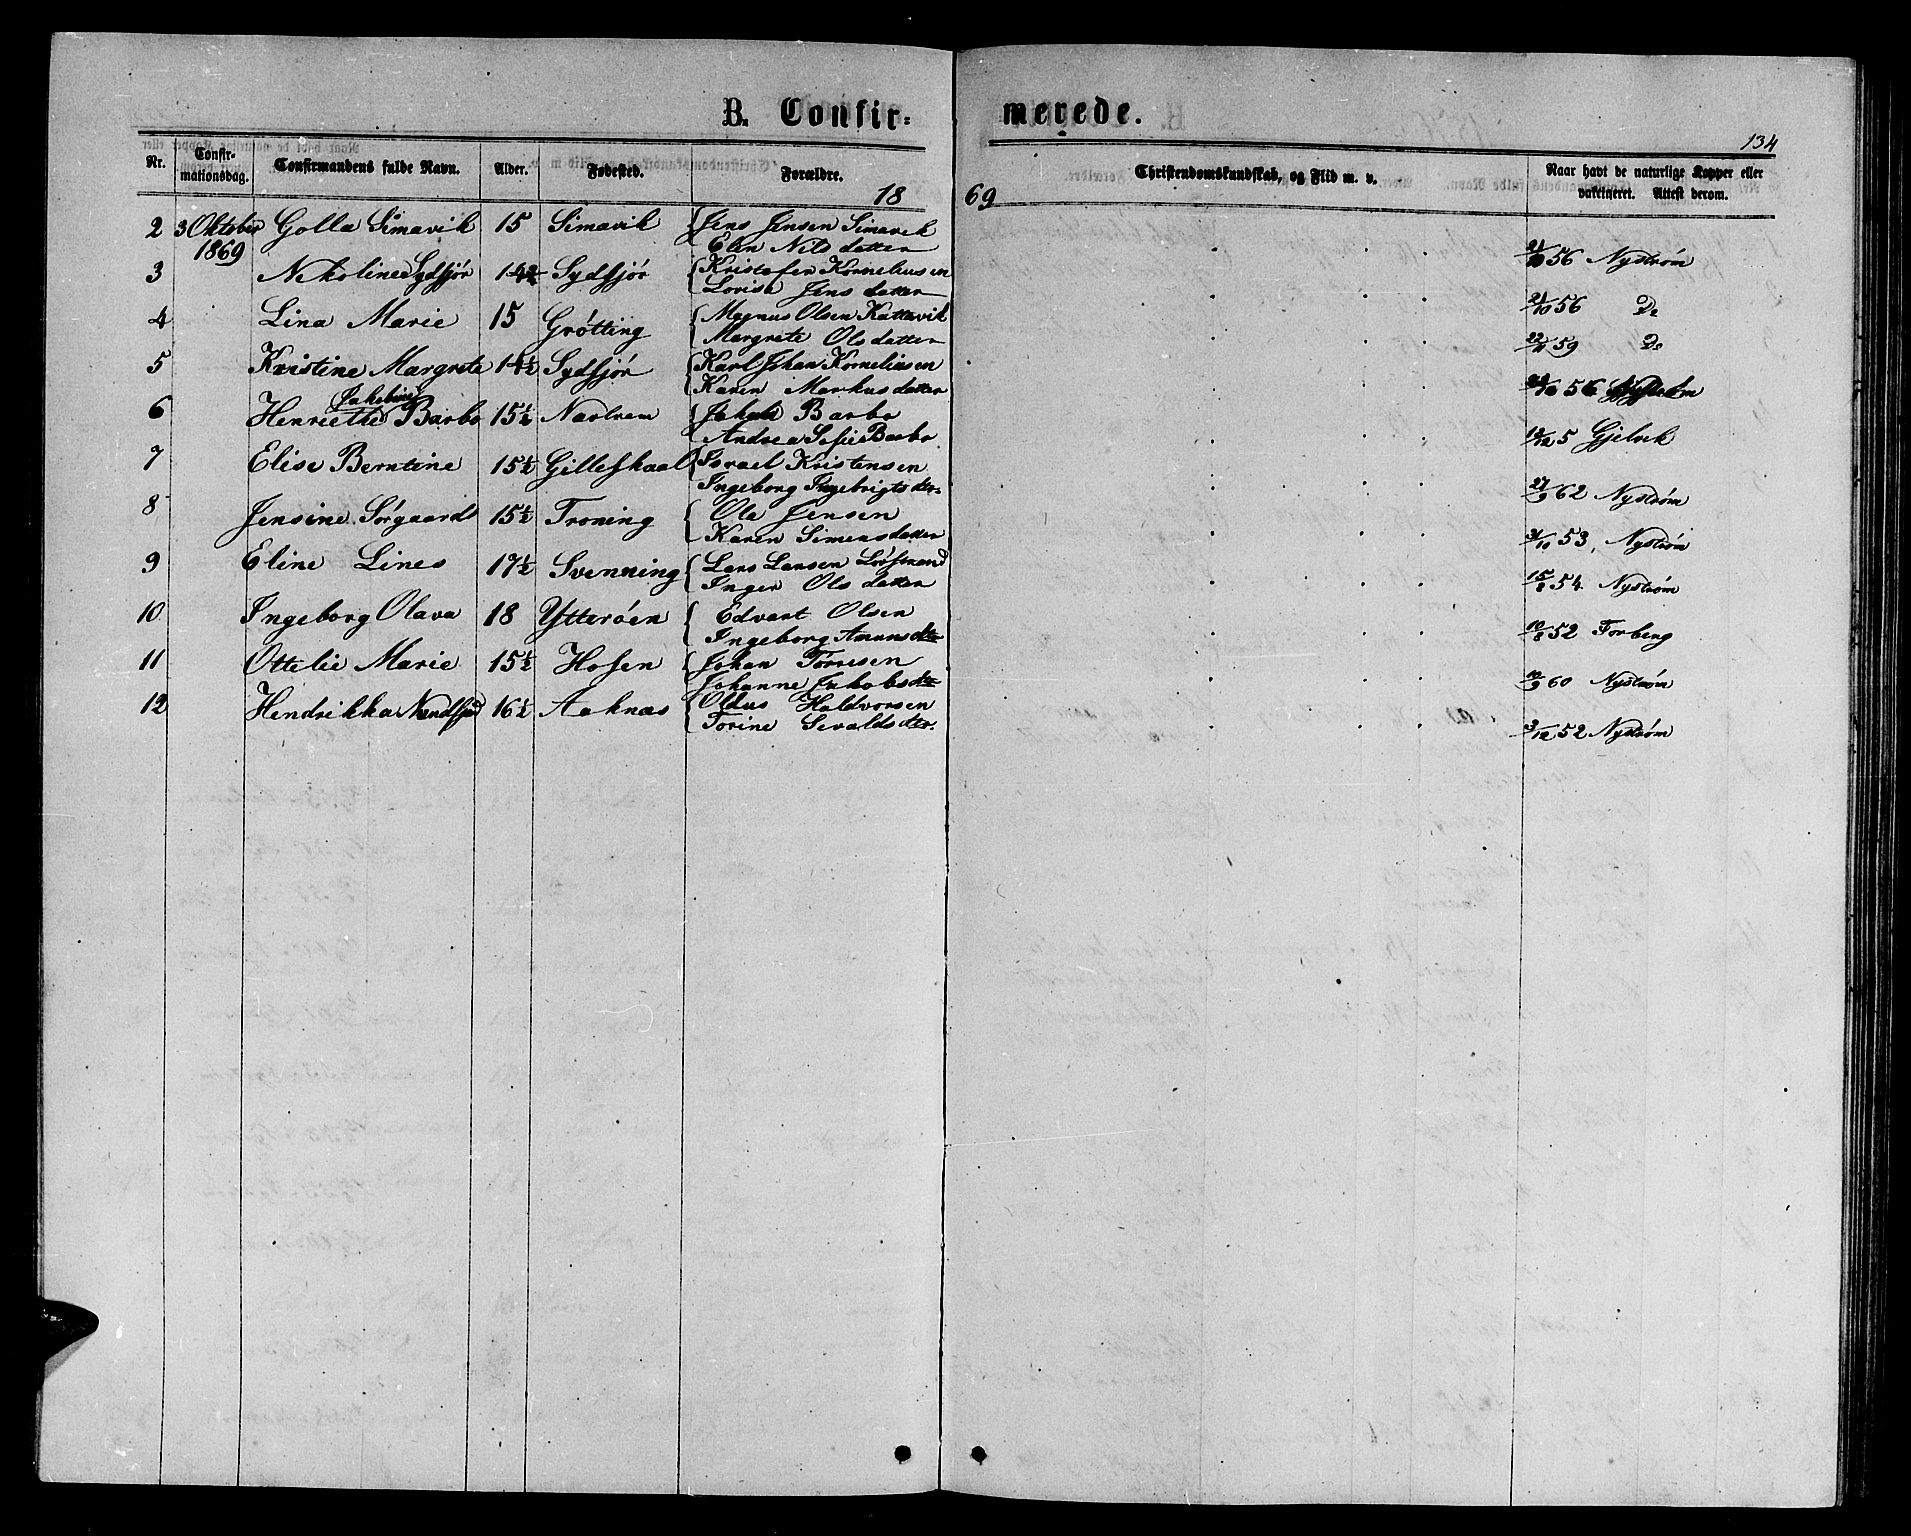 B. Confir-
merede.
134
Nr.
Confir-
mationsdag.
Confirmandens fulde Navn.
Alder.
Fødested.
Forældre.
Christendomskundskab, og Flid m. v.
Naar havt de naturlige Kopper eller
vakcineret. Attest derom.
18 69
2 3 Oktober Golla Simavik 15 Simavik Jens Jensen Simavik
1869 Elen Nils datter 56 Nystrøm
3 Nikoline Sydfjør Sydfjør Kristofer Kornelius en
Lovise Jens datter 56 Do
4 Lina Marie 15 Grøtting Magnus Olsen Kattavik
Margrete Ols datter 59 Do
5 Kristine Margrete 14½ Sydfjør Karl Johan Kornelius en
Karen Markus datter 56
Jakobine
6 Henriethe Barbo 15½ Jakob Barbo
Andrea Sofie Barbo 5 Gjelvik
7 Elise Berntine 15½ Gilleskaal Israel Kristensen
Ingeborg Ingebrigts dtr. 27/9 62 Nystrøm
8 Jensine Sørgaard 15½ Troning Ole Jensen
Karen Simensdatter 53, Nystrøm
9 Eline Lines 17½ Svenning Lars Larsen
Inger Ols datter 15/8 54 Nystrøm
10 Ingeborg Olava 18 Ytterøen Edvart Olsen
Ingeborg Amunsdtr 10/8 52 Forberg
11 Ottilie Marie 15½ Hosen Johan Torresen
Johanne Jakobsdtr 60 Nystrøm
12 Hendrikka 16½ Aaknas Oldus Haldvorsen
Torine Sevalds dtr. 3/12 52 Nystrøm